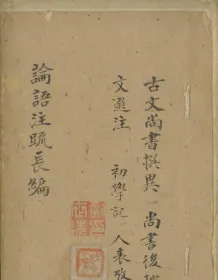 古文尚書撰異 尚書後
文選注 初學記 人表攷
論語注疏長編